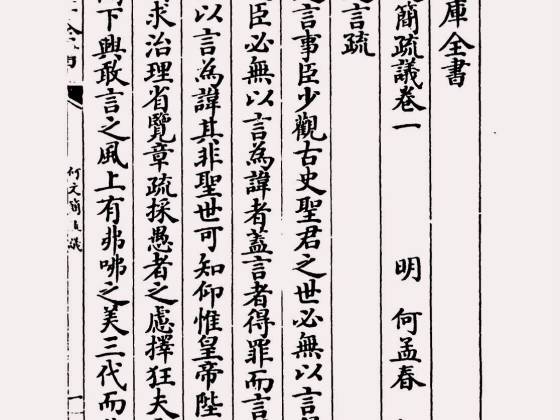 庫全書
簡疏議卷一 明 何孟春
言疏
言事臣少觀古史聖君之世必無以言
臣必無以言為諱者蓋言者得罪而言
以言為諱其非聖世可知仰惟皇帝陛
求治理省覽章疏採愚者之慮擇狂夫
下興敢言之風上有弗咈之美三代而
何文簡疏議
一